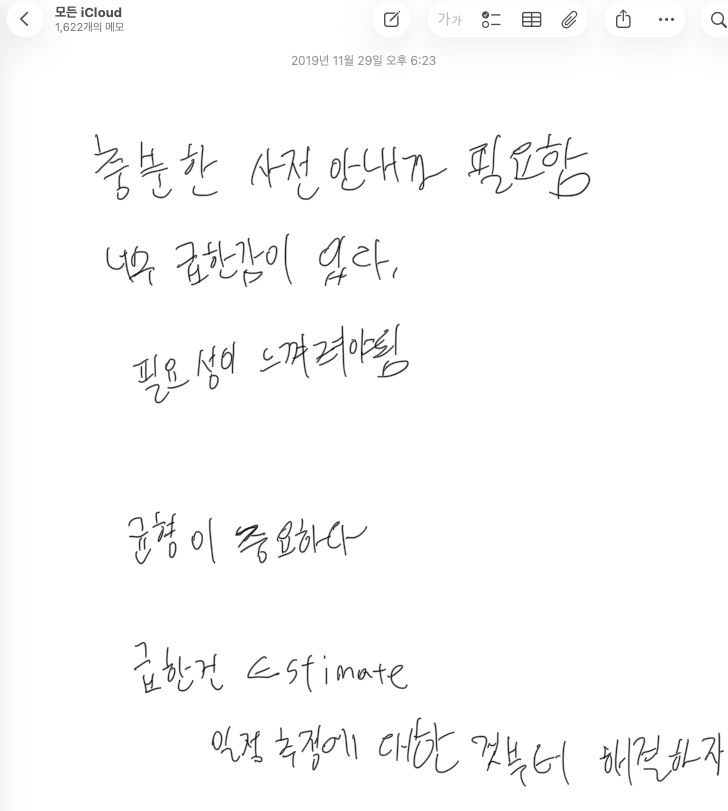 모든 iCloud
1,622개의 메모
가가
2019년 11월 29일 오후 6:23
충분한 사전 안내가 필요함
너무 급한감이 있다.
필요성이 느껴져야됨
균형이 중요하다
급한건 Estimate
일정 추정에 대한 것부터 해결하자